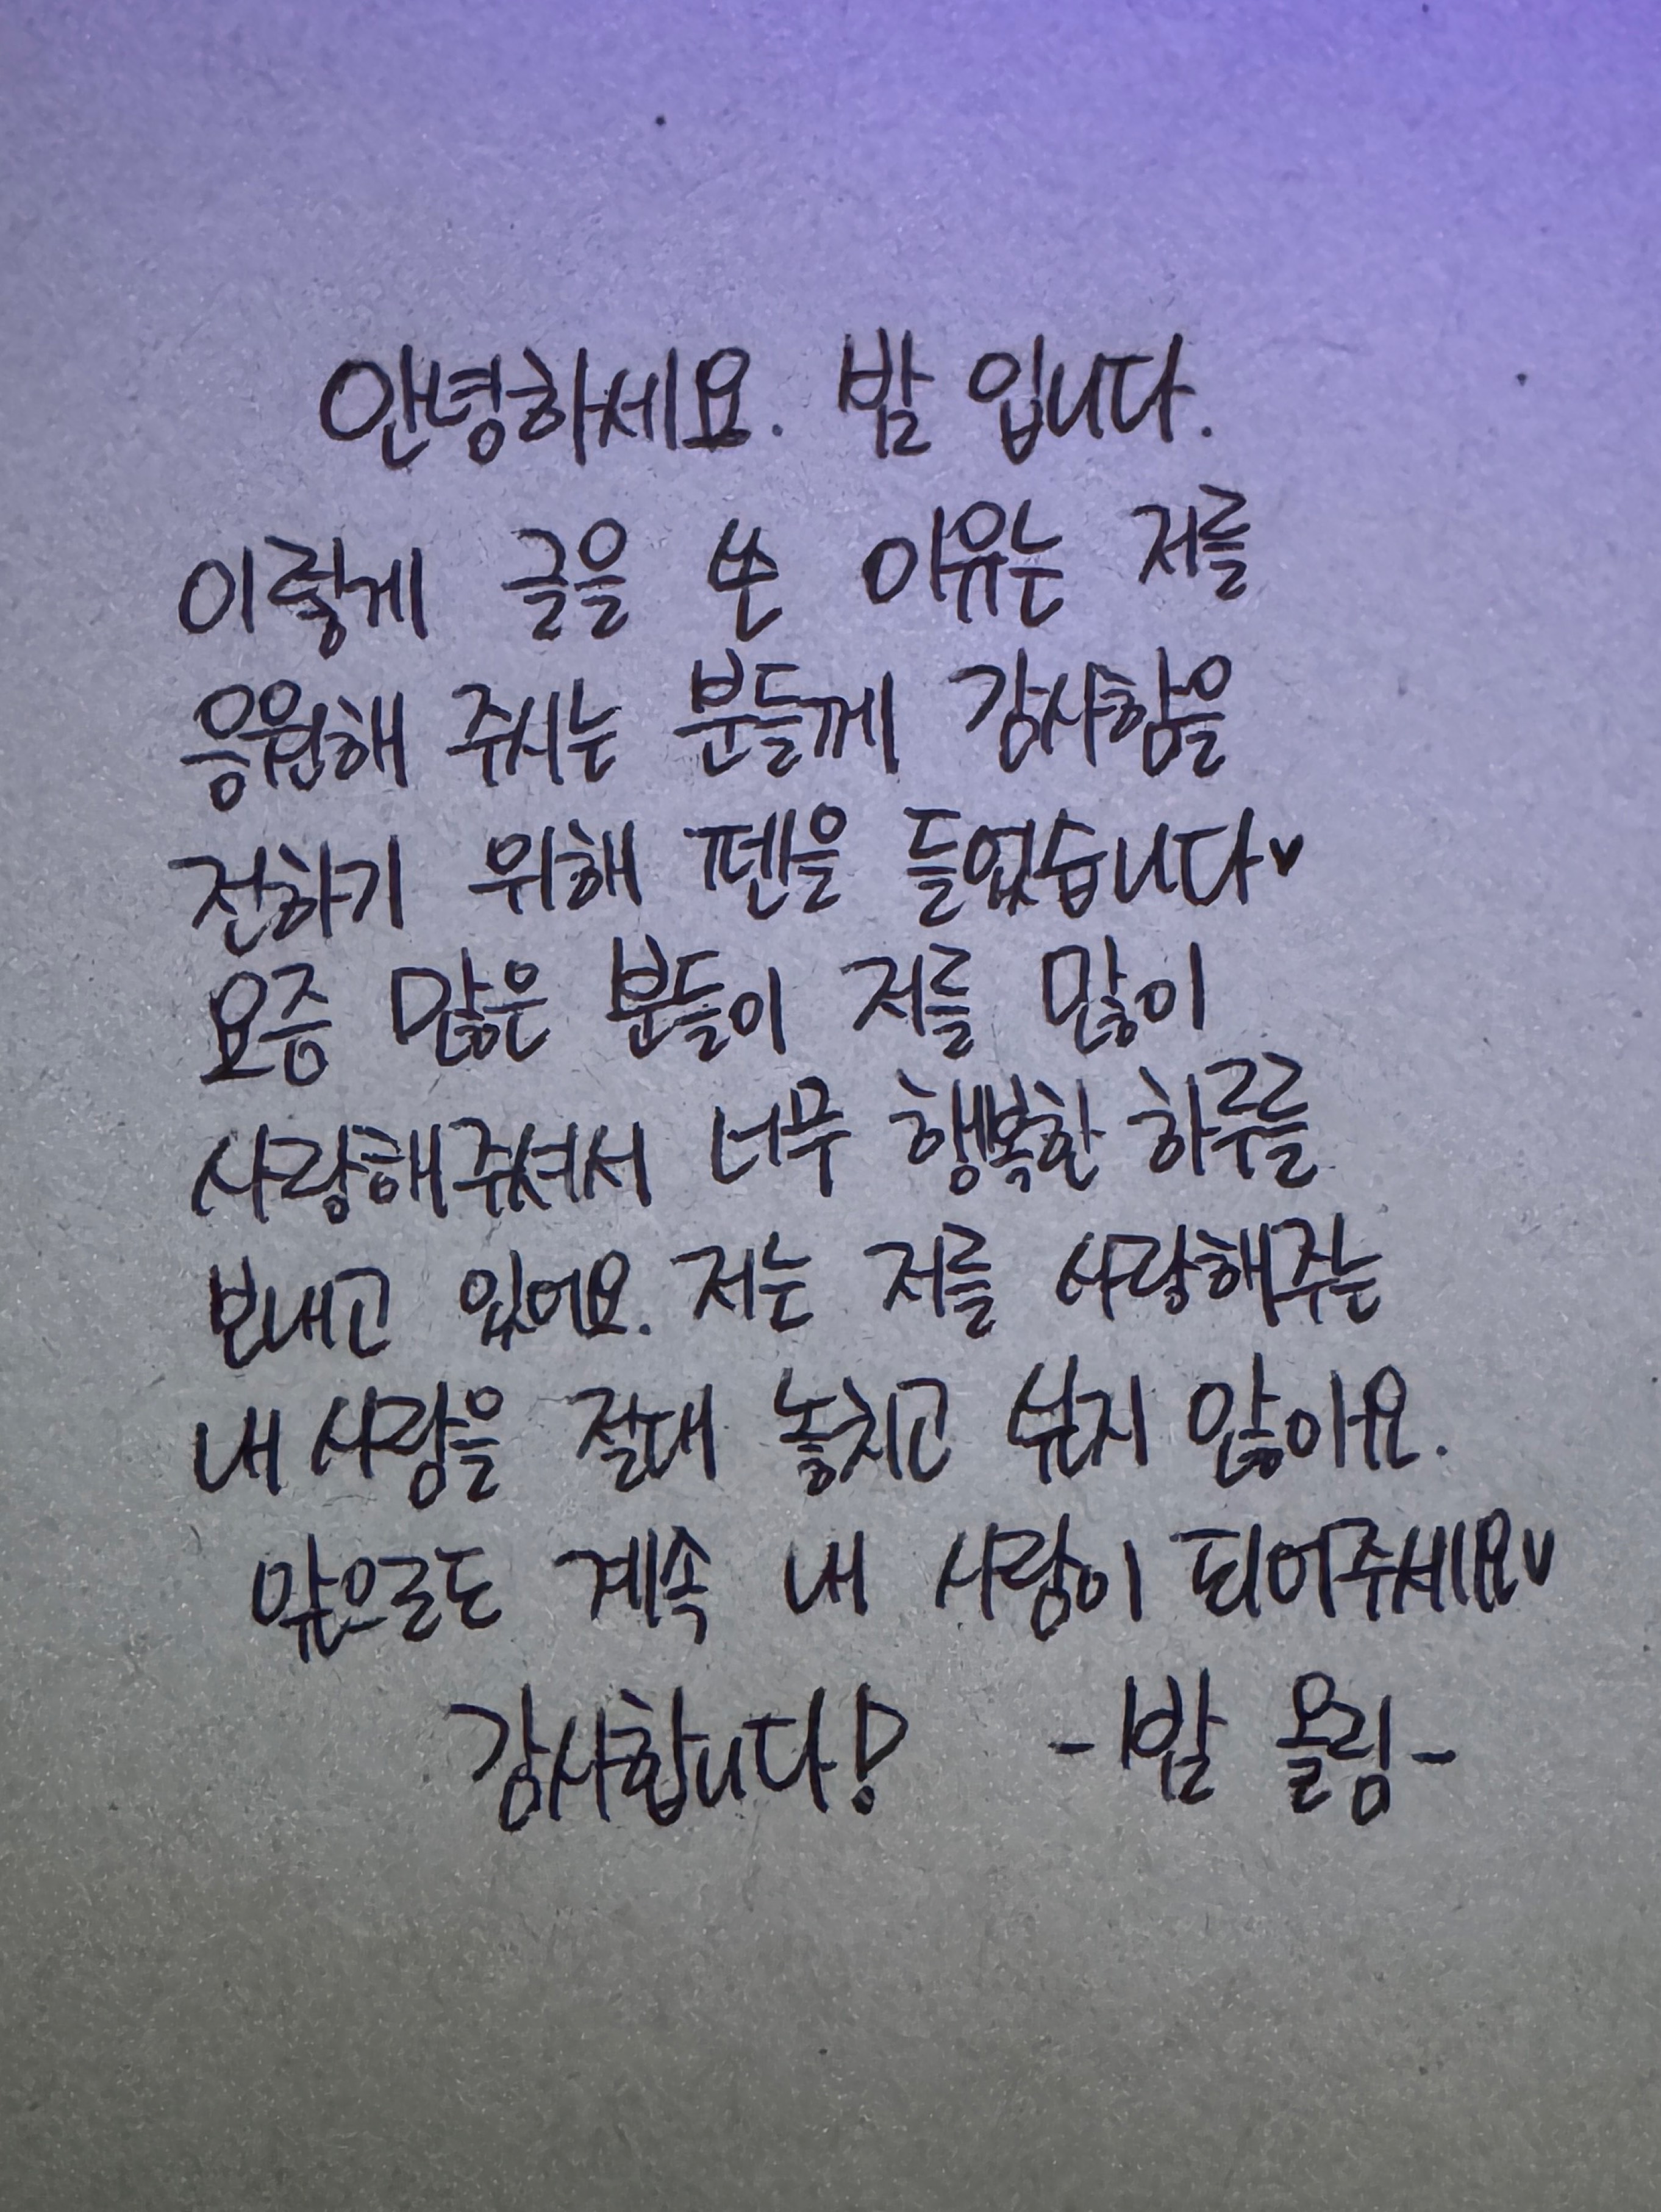 안녕하세요. 발 입니다.
이렇게 글을 쓴 이유는 저를
응원해 주시는 분들께 감사함을
전하기 위해 펜을 들었습니다♥
요즘 많은 분들이 저를 많이
사랑해주셔서 너무 행복한 하루를
보내고 있어요. 저는 저를 사랑해주는
내 사랑을 절대 놓치고 싶지 않아요.
앞으로도 계속 내 사랑이 되어주세요♥
감사합니다! -발 올림-